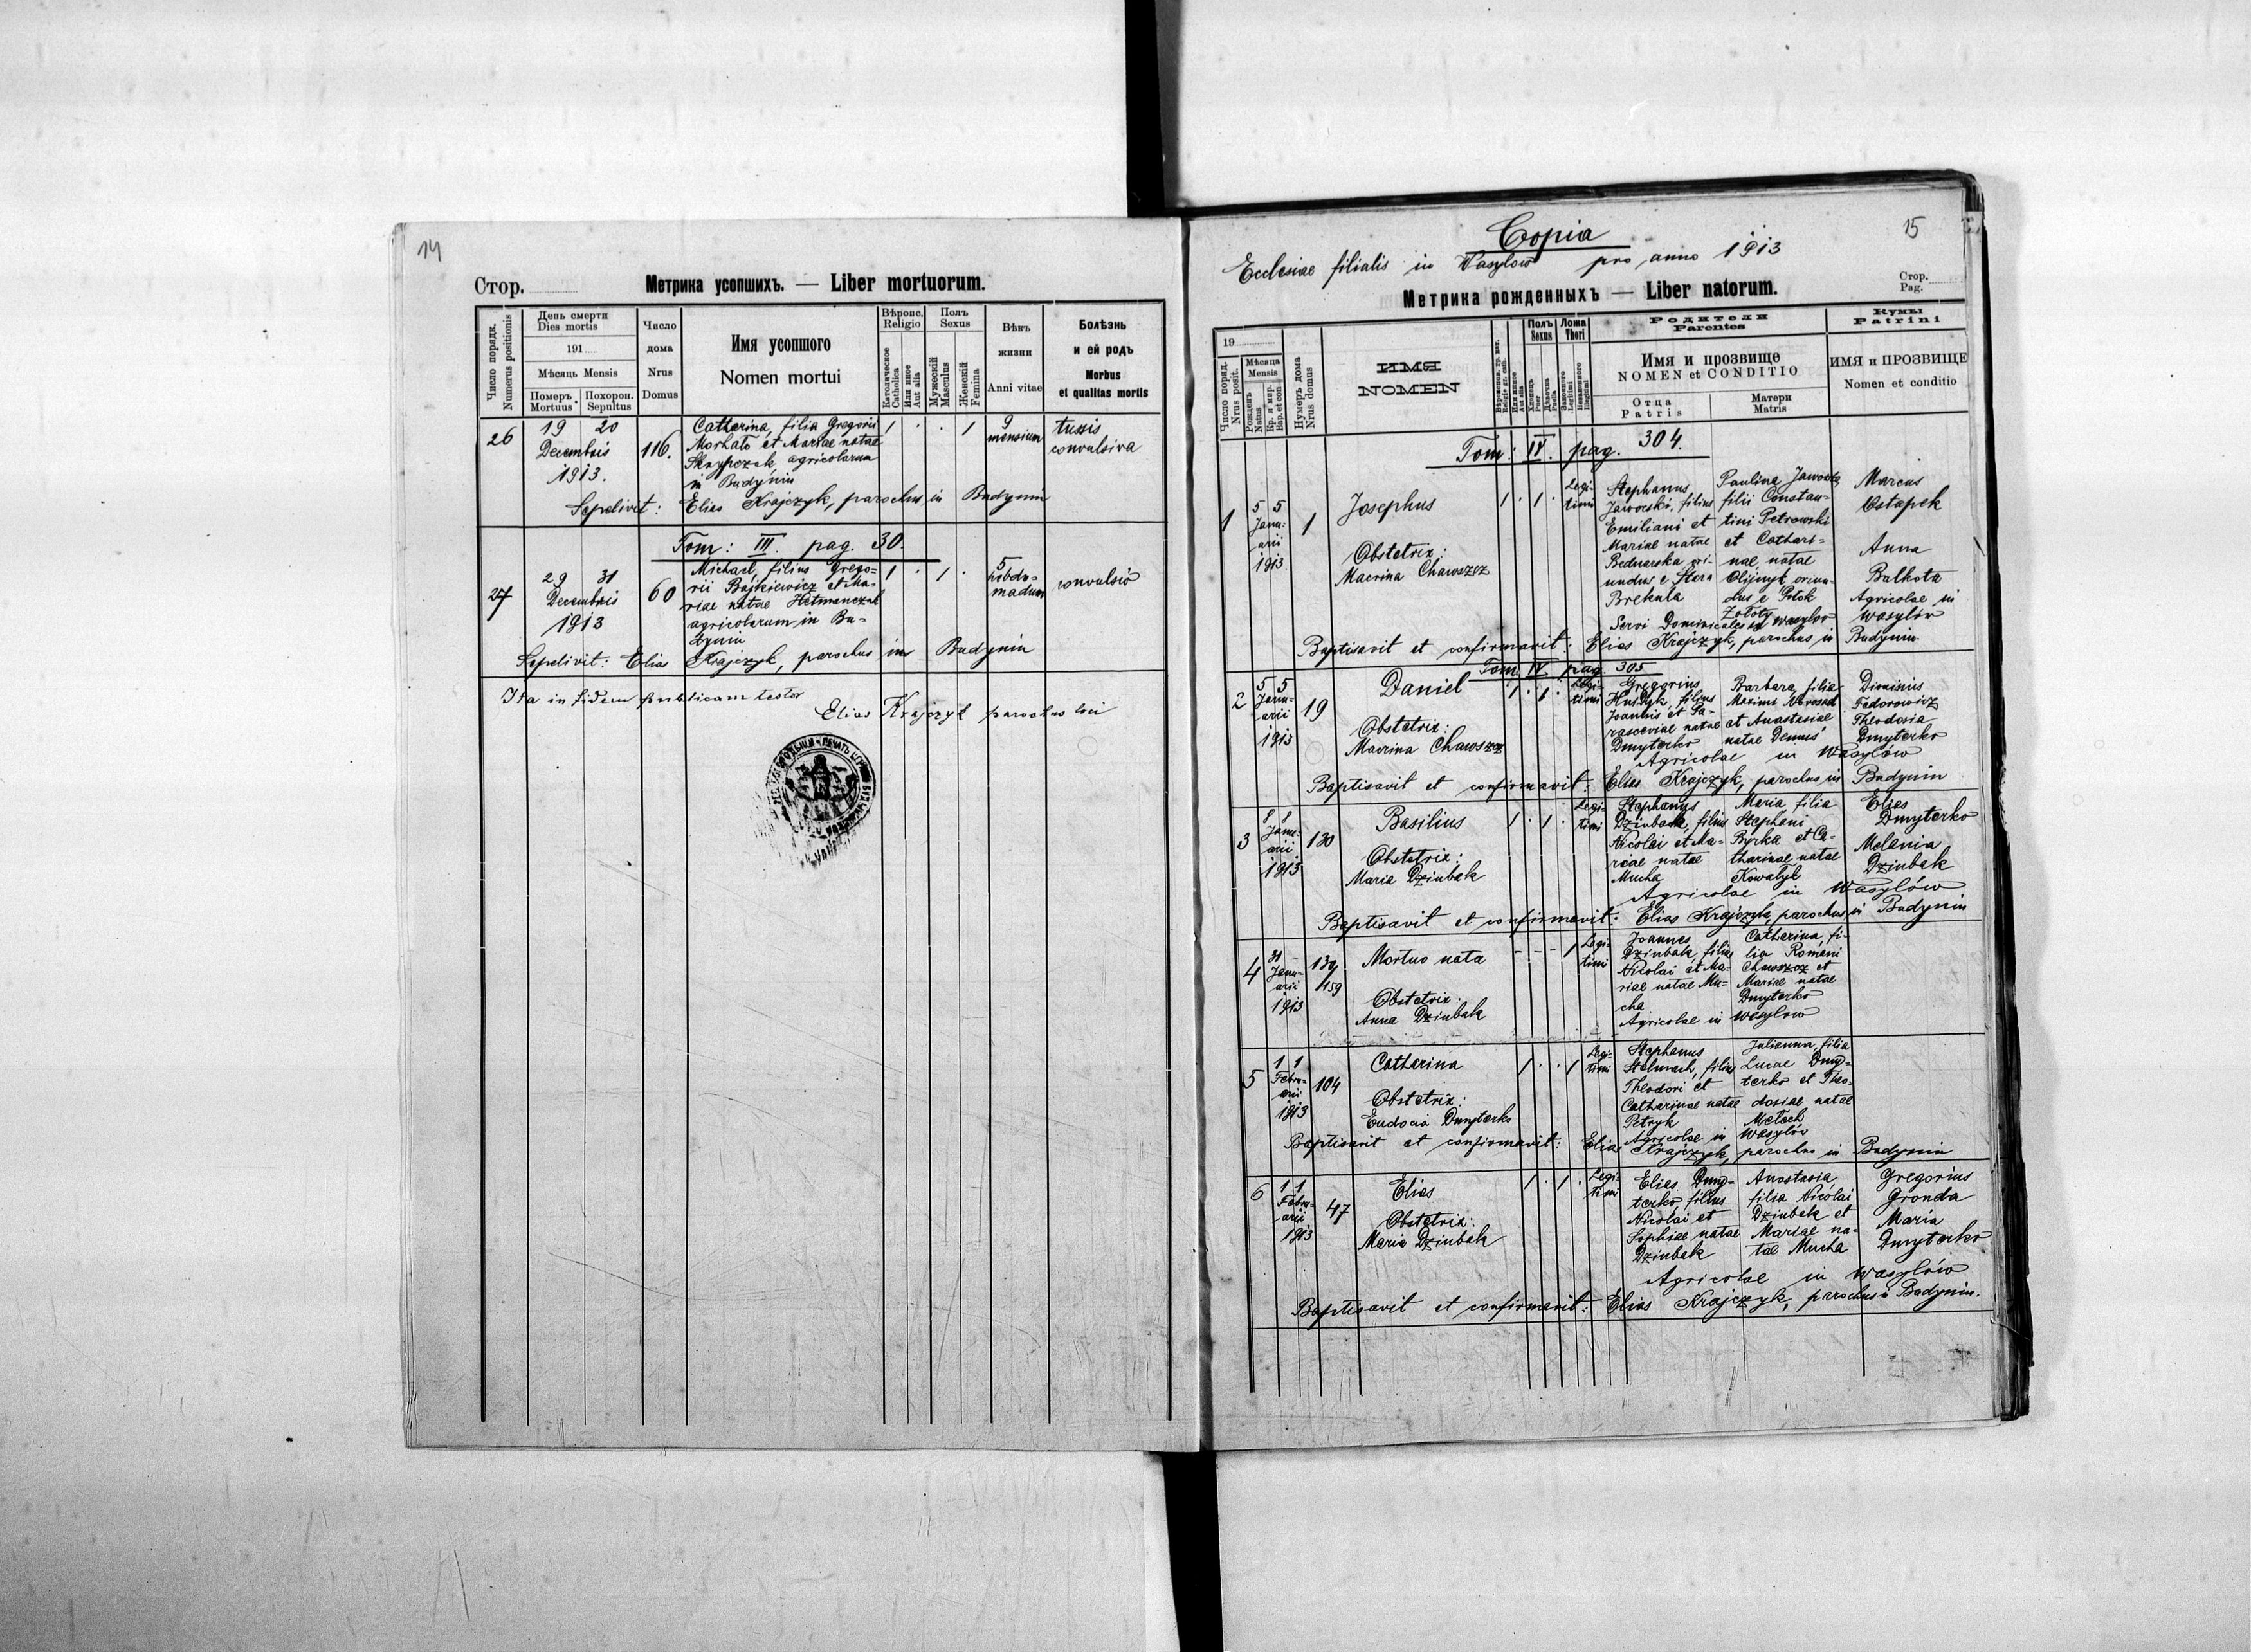 14
Стор.
Метрика усопшихъ. — Liber mortuorum.
Число порядк.
Numerus positionis
День смерти
Dies mortis
191
Мѣсяць Mensis
Померъ
Mortuus
Похорон.
Sepultus
Число
дома
Nrus
Domus
Имя усопшого
Nomen mortui
Вѣроис.
Religio
Католическое
Catholica
Или иное
Aut alia
Полъ
Sexus
Мужескій
Masculus
Женскій
Femina
Вѣкъ
жизни
Anni vitae
Болѣзнь
и ей родъ
Morbus
et qualitas mortis
26
19 20
Decembris
1913.
116.
Catharina, filia Gregorii
et Mariae natae
Skrypczuk, agricolarum
in Budynin
1 . . 1
9
mensium
tussis
convulsiva
Sepelivit: Elias Krajczyk, parochus in Budynin
Tom: III. pag. 30.
27
29 31
Decembris
1913
60
Michael, filius Grego-
rii Bajkiewicz et Ma-
riae natae Hetmanczuk
agricolarum in Bu-
dynin
1 . 1 .
5
hebdo-
madum
convulsio
Sepelivit: Elias Krajczyk, parochus in Budynin
Ita in fidem publicam testor
Elias Krajczyk parochus loci
15
Copia
Ecclesiae filialis in Wasylow pro anno 1913
Метрика рожденныхъ — Liber natorum.
Стор.
Pag.
19
Число поряд.
Nrus posit.
Мѣсяца
Mensis
Рожденъ
Natus
Кр. и мир.
Bap. et con.
Нумеръ дома
Nrus domus
ИМЯ
NOMEN
Полъ
Sexus
Ложа
Thori
Родители
Parentes
Имя и прозвище
NOMEN et CONDITIO
Отца
Patris
Матери
Matris
Кумы
Patrini
ИМЯ и ПРОЗВИЩЕ
Nomen et conditio
Tom: IV. pag. 304.
1
5 5
Janu-
arii
1913
1
Josephus
Obstetrix:
Macrina Chawszcz
1 . 1 .
Legi-
timi
Stephanus
Jaworski, filius
Emiliani et
Mariae natae
Bednarska ori-
undus e Stara
Brekula
Paulina
filii Constan-
tini Petrowski
et Cathari-
nae, natae
Olijnyk oriun-
dus e Potok
Zołoty
Servi Dominicales in Wasylow
Marcus
Ostapek
Anna
Bałkota
Agricolae in
Wasylów
Baptisavit et confirmavit: Elias Krajczyk, parochus in Budynin
Tom IV pag. 305
2
5 5
Janu-
arii
1913
19
Daniel
Obstetrix:
Macrina Chawszcz
1 . 1 .
Legi-
timi
Gregorius
filius
Joannis et Pa-
rasceviae natae
Dmyterko
Barbara, filia
Maximi
et Anastasiae
natae Demus
Agricolae in Wasylów
Dionisius
Fedorowicz
Theodosia
Dmyterko
Baptisavit et confirmavit: Elias Krajczyk, parochus in Budynin
3
8 8
Janu-
arii
1913
130
Basilius
Obstetrix:
Maria Dziubak
1 . 1 .
Legi-
timi
Stephanus
Dziubak, filius
Nicolai et Ma-
riae natae
Mucha
Maria filia
Stephani
Byrka et Ca-
tharinae natae
Kowalyk
Agricolae in Wasylów
Elias
Dmyterko
Melania
Dziubak
Baptisavit et confirmavit: Elias Krajczyk, parochus in Budynin
4
31 –
Janu-
arii
1913
139
159
Mortuo nata
Obstetrix:
Anna Dziubak
– – – 1
Legi-
timi
Joannes
Dziubak, filius
Nicolai et Ma-
riae natae Mu-
cha
Catharina, fi-
lia Romani
Chawszcz et
Mariae natae
Dmyterko
Agricolae in Wasylow
5
1 1
Febru-
arii
1913
104
Catharina
Obstetrix:
Eudocia Dmyterko
1 . . 1
Legi-
timi
Stephanus
Stelmach, filius
Theodori et
Catharinae natae
Petryk
Julianna, filia
Lucae Dmy-
terko et Theo-
dosiae natae
Mełech
Agricolae in Wasylów
Baptisavit et confirmavit: Elias Krajczyk, parochus in Budynin
6
1 1
Febru-
arii
1913
47
Elias
Obstetrix:
Maria Dziubak
1 . 1 .
Legi-
timi
Elias Dmy-
terko, filius
Nicolai et
Sophiae natae
Dziubak
Anastasia,
filia Nicolai
Dziubak et
Mariae na-
tae Mucha
Agricolae in Wasylów
Gregorius
Gronda
Maria
Dmyterko
Baptisavit et confirmavit: Elias Krajczyk, parochus in Budynin.